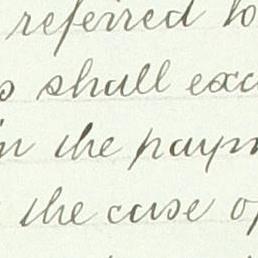 referred to
shall exc
in the paym
the case of